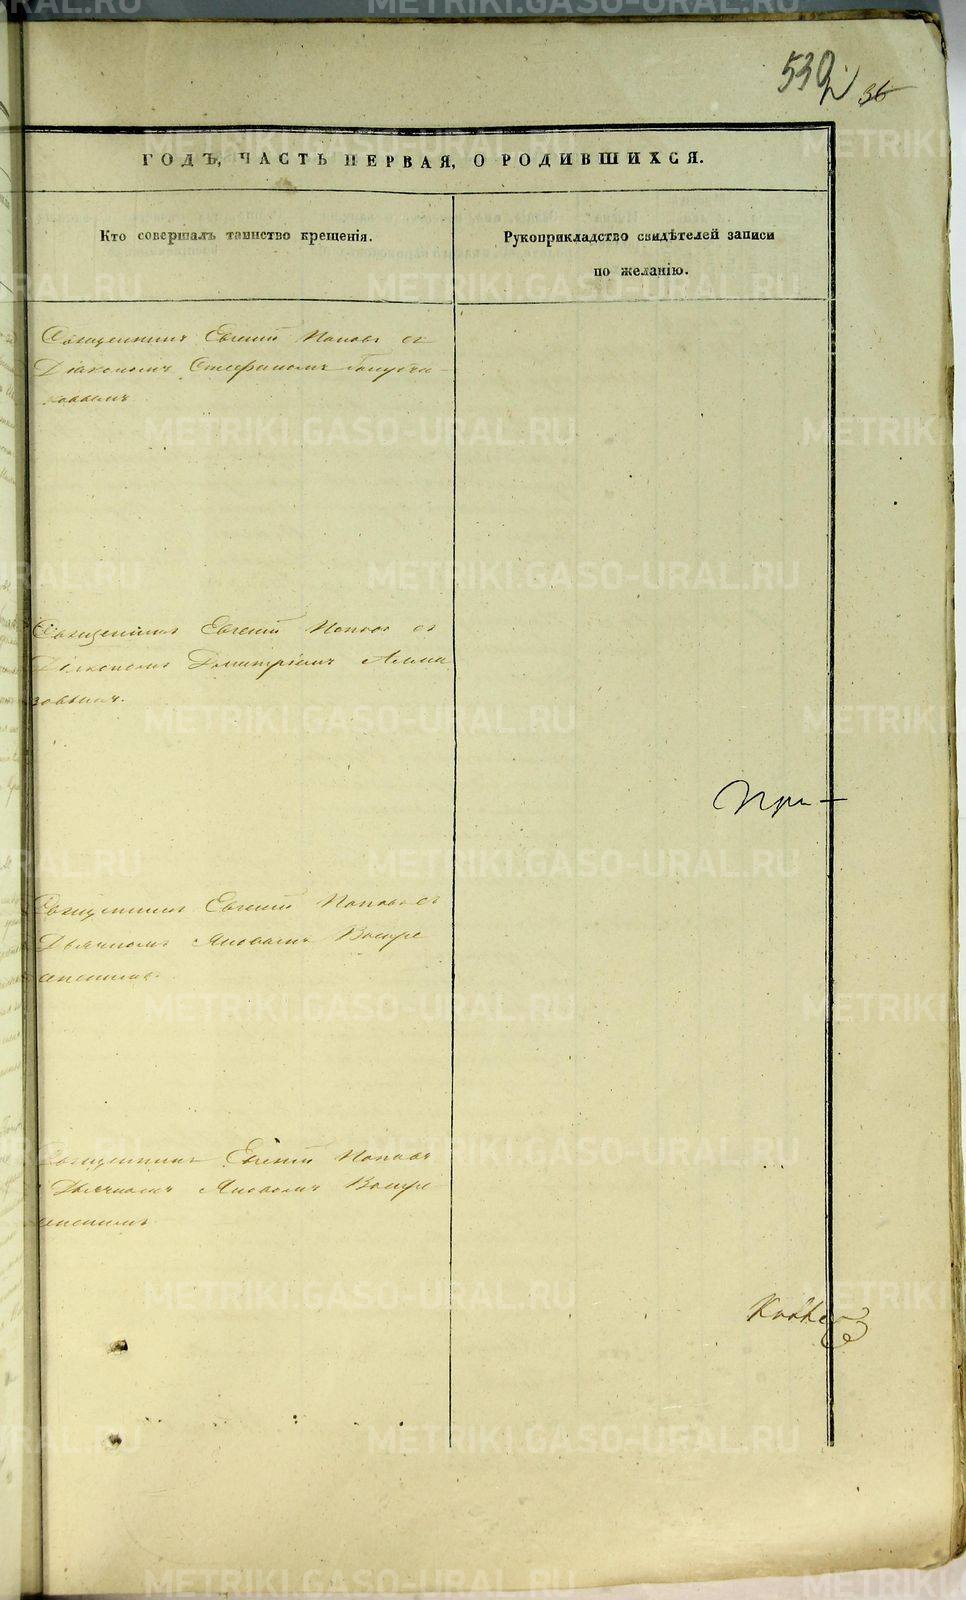 539
36
ГОДЪ, ЧАСТЬ ПЕРВАЯ, О РОДИВШИХСЯ.
Кто совершалъ таинство крещенія.
Рукоприкладство свидѣтелей записи
по желанію.
Священникъ Евгеній Поповъ съ
Діакономъ Стефаномъ Голубчи-
ковымъ
Священникъ Евгеній Поповъ съ
Діакономъ Димитріемъ Алма
зовымъ.
При-
Священникъ Евгеній Поповъ съ
Дьячкомъ Яковомъ Воскре
сенскимъ.
Священникъ Евгеній Поповъ
Дьячкомъ Яковомъ Воскре
сенскимъ
METRIKI.GASO-URAL.RU